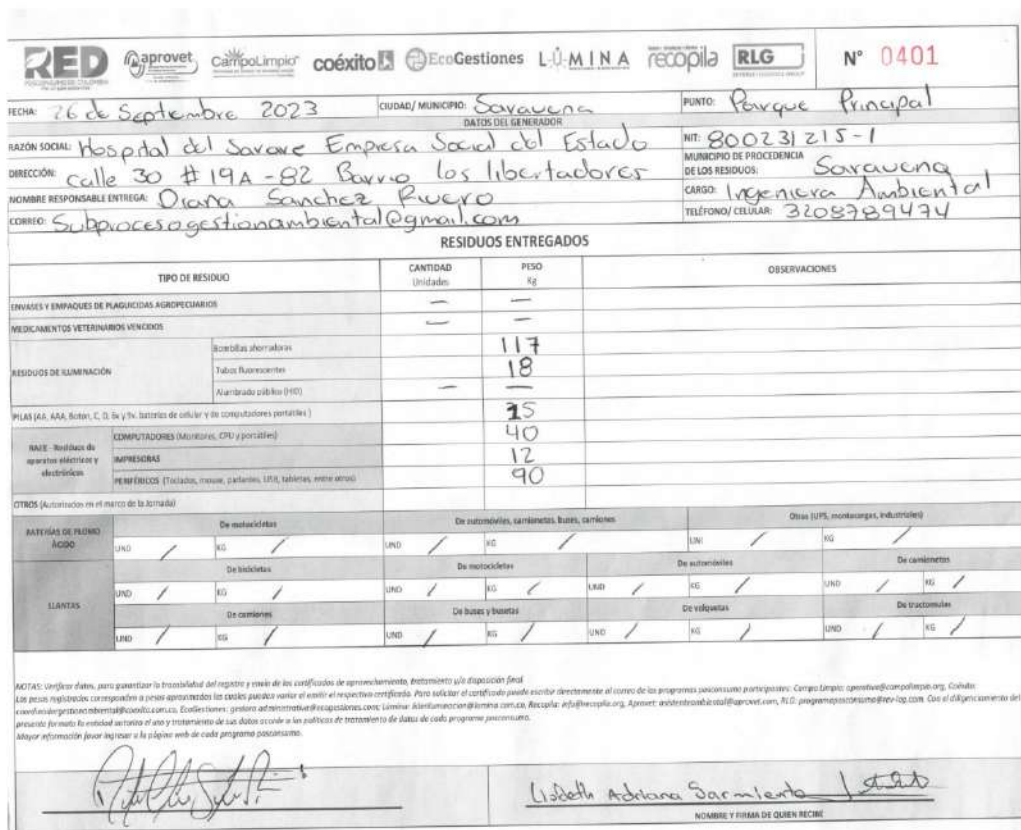 RED aprovet CampoLimpio coéxito EcoGestiones LÚMINA recopila RLG N° 0401
POSCONSUMO DE COLOMBIA
FECHA: 26 de Septiembre 2023 CIUDAD/ MUNICIPIO: Saravena PUNTO: Parque Principal
DATOS DEL GENERADOR
RAZÓN SOCIAL: Hospital del Sarare Empresa Social del Estado NIT: 800231215-1
DIRECCIÓN: calle 30 # 19A-82 Barrio los libertadores MUNICIPIO DE PROCEDENCIA DE LOS RESIDUOS: Saravena
NOMBRE RESPONSABLE ENTREGA: Diana Sanchez Rivero CARGO: Ingeniera Ambiental
CORREO: Subprocesogestionambiental@gmail.com TELÉFONO/ CELULAR: 3208789474
RESIDUOS ENTREGADOS
TIPO DE RESIDUO CANTIDAD Unidades PESO Kg OBSERVACIONES
ENVASES Y EMPAQUES DE PLAGUICIDAS AGROPECUARIOS — —
MEDICAMENTOS VETERINARIOS VENCIDOS — —
RESIDUOS DE ILUMINACIÓN
Bombillas ahorradoras 117
Tubos fluorescentes 18
Alumbrado público (HID) — —
PILAS (AA, AAA, Boton, C, D, 6v y 9v, baterías de celular y de computadores portátiles ) 25
RAEE - Residuos de aparatos eléctricos y electrónicos
COMPUTADORES (Monitores, CPU y portátiles) 40
IMPRESORAS 12
PERIFÉRICOS (Teclados, mouse, parlantes, USB, tabletas, entre otros) 90
OTROS (Autorizados en el marco de la Jornada)
BATERÍAS DE PLOMO ÁCIDO De motocicletas De automóviles, camionetas, buses, camiones Otras (UPS, montacargas, industriales)
UND / KG / UND / KG / UNI / KG /
LLANTAS
De bicicletas De motocicletas De automóviles De camionetas
UND / KG / UND / KG / UND / KG / UND / KG /
De camiones De buses y busetas De volquetas De tractomulas
UND / KG / UND / KG / UND / KG / UND / KG /
NOTAS: Verificar datos, para garantizar la trazabilidad del registro y envío de los certificados de aprovechamiento, tratamiento y/o disposición final
Los pesos registrados corresponden a pesos aproximados los cuales pueden variar al emitir el respectivo certificado. Para solicitar el certificado puede escribir directamente al correo de los programas posconsumo participantes: Campo Limpio: operativo@campolimpio.org, Coéxito:
EcoGestiones: Lúmina: Recopila: info@recopila.org, Aprovet: RLG: Con el diligenciamiento del
presente formato la entidad autoriza el uso y tratamiento de sus datos acorde a las políticas de tratamiento de datos de cada programa posconsumo.
Mayor información favor ingresar a la página web de cada programa posconsumo.
Lisbeth Adriana Sarmiento
NOMBRE Y FIRMA DE QUIEN RECIBE